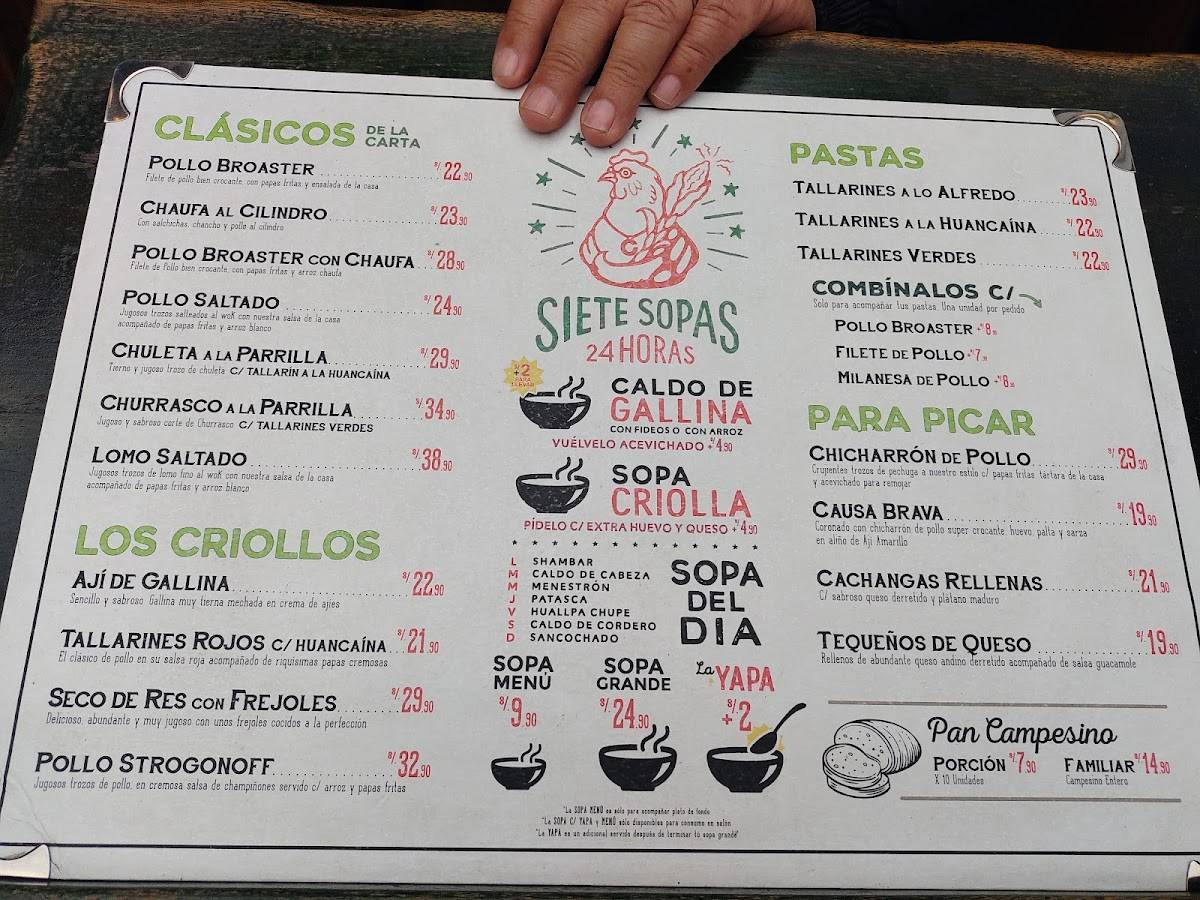 CLÁSICOS DE LA CARTA
POLLO BROASTER S/ 22.90
Filete de pollo bien crocante, con papas fritas y ensalada de la casa
CHAUFA AL CILINDRO S/ 23.90
Con salchichas, chancho y pollo al cilindro
POLLO BROASTER CON CHAUFA S/ 28.90
Filete de Pollo bien crocante, con papas fritas y arroz chaufa
POLLO SALTADO S/ 24.90
Jugosos trozos salteados al wok con nuestra salsa de la casa
acompañado de papas fritas y arroz blanco
CHULETA A LA PARRILLA S/ 29.90
Tierno y jugoso trozo de chuleta C/ TALLARÍN A LA HUANCAÍNA
CHURRASCO A LA PARRILLA S/ 34.90
Jugoso y sabroso corte de Churrasco C/ TALLARINES VERDES
LOMO SALTADO S/ 38.90
Jugosos trozos de lomo fino al wok con nuestra salsa de la casa
acompañado de papas fritas y arroz blanco
LOS CRIOLLOS
AJÍ DE GALLINA S/ 22.90
Sencillo y sabroso. Gallina muy tierna mechada en crema de ajíes
TALLARINES ROJOS C/ HUANCAÍNA S/ 21.90
El clásico de pollo en su salsa roja acompañado de riquísimas papas cremosas
SECO DE RES CON FREJOLES S/ 29.90
Delicioso, abundante y muy jugoso con unos frejoles cocidos a la perfección
POLLO STROGONOFF S/ 32.90
Jugosos trozos de pollo, en cremosa salsa de champiñones servido c/ arroz y papas fritas
SIETE SOPAS
24 HORAS
S/ +2 PARA LLEVAR
CALDO DE
GALLINA
CON FIDEOS O CON ARROZ
VUÉLVELO ACEVICHADO + S/ 4.90
SOPA
CRIOLLA
PÍDELO C/ EXTRA HUEVO Y QUESO + S/ 4.90
L SHAMBAR
M CALDO DE CABEZA
M MENESTRÓN
J PATASCA
V HUALLPA CHUPE
S CALDO DE CORDERO
D SANCOCHADO
SOPA
DEL
DIA
SOPA
MENÚ
S/ 9.90
SOPA
GRANDE
S/ 24.90
La YAPA
S/ +2
"La SOPA MENÚ es sólo para acompañar plato de fondo
"La SOPA C/ YAPA y MENÚ sólo disponibles para consumo en salón
"La YAPA es un adicional servido después de terminar tu sopa grande"
PASTAS
TALLARINES A LO ALFREDO S/ 23.90
TALLARINES A LA HUANCAÍNA S/ 22.90
TALLARINES VERDES S/ 22.90
COMBÍNALOS C/
Solo para acompañar tus pastas. Una unidad por pedido
POLLO BROASTER + S/ 8.90
FILETE DE POLLO + S/ 7.90
MILANESA DE POLLO + S/ 8.90
PARA PICAR
CHICHARRÓN DE POLLO S/ 29.90
Crujientes trozos de pechuga a nuestro estilo c/ papas fritas, tártara de la casa
y acevichado para remojar
CAUSA BRAVA S/ 19.90
Coronado con chicharrón de pollo super crocante, huevo, palta y sarza
en aliño de Ají Amarillo
CACHANGAS RELLENAS S/ 21.90
C/ sabroso queso derretido y plátano maduro
TEQUEÑOS DE QUESO S/ 19.90
Rellenos de abundante queso andino derretido acompañado de salsa guacamole
Pan Campesino
PORCIÓN S/ 7.90
X 10 Unidades
FAMILIAR S/ 14.90
Campesino Entero